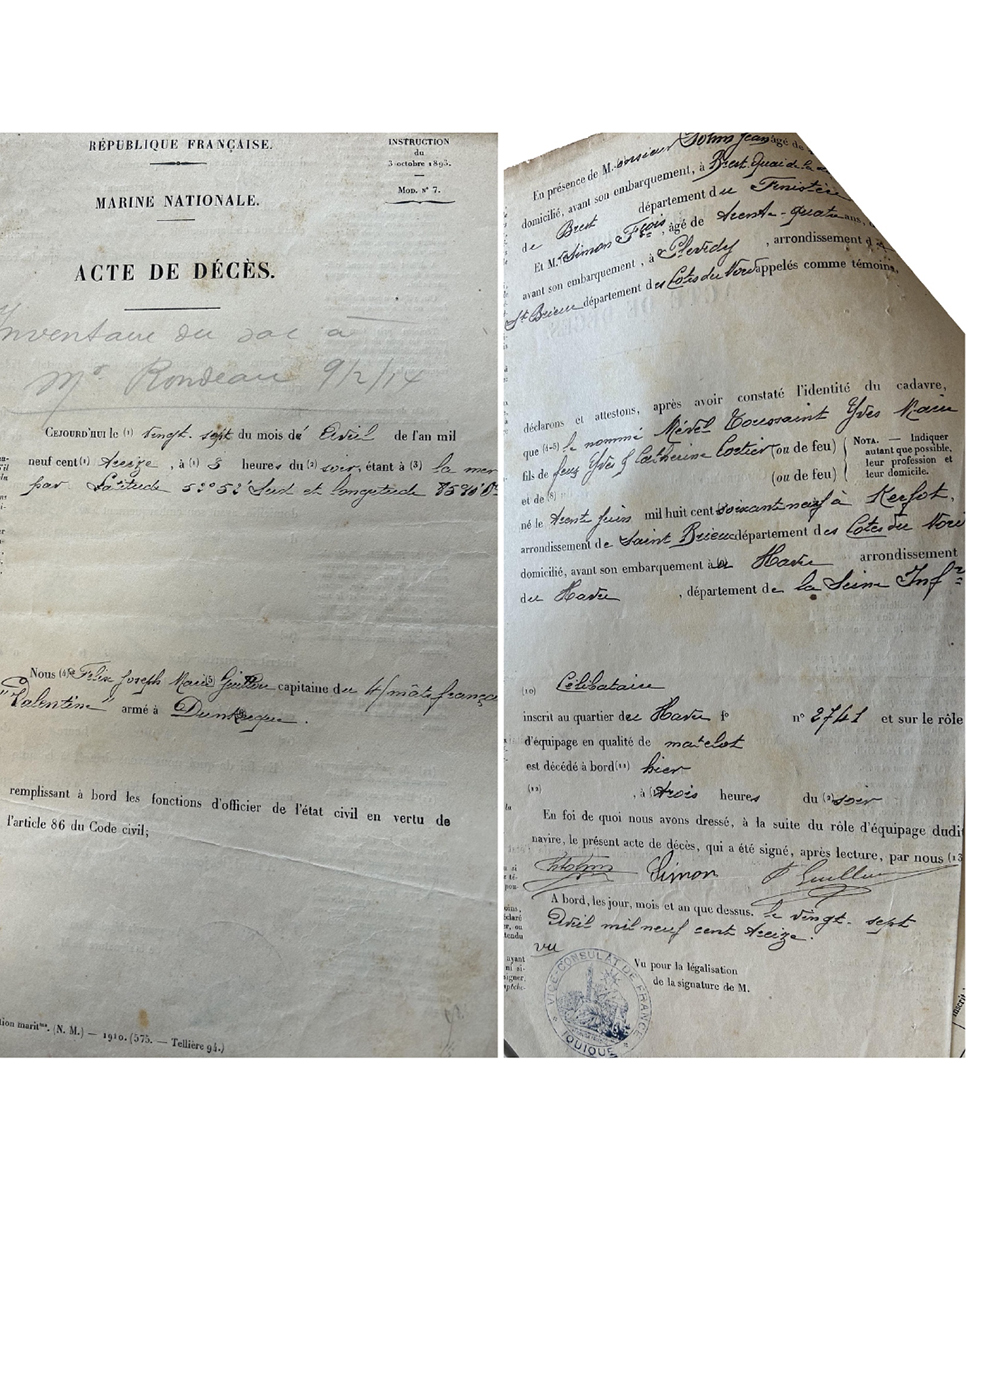 RÉPUBLIQUE FRANÇAISE.
MARINE NATIONALE.
INSTRUCTION
du
3 octobre 1895.
Mod. N° 7.
ACTE DE DÉCÈS.
Inventaire du sac a
Mr Rondeau 9/2/14
CEJOURD'HUI le (1) vingt-sept du mois de Avril de l'an mil
neuf cent (1) treize, à (1) 3 heures du (2) soir, étant à (3) la mer
par Latitude 52°52' Sud et longitude
Nous (4) Félix Joseph Marie (5) Guillou capitaine du 4/mâts françai
"Valentine" armé à Dunkerque.
remplissant à bord les fonctions d'officier de l'état civil en vertu de
l'article 86 du Code civil;
tion maritme. (N. M.) — 1910. (575. — Tellière 94.)
En présence de M. onsieur Jean âgé de
domicilié, avant son embarquement, à Brest, Quai de la
de Brest département du Finistère
Et M. Simon Fçois, âgé de trente-quatre ans,
avant son embarquement, à Plévidy, arrondissement d
St Brieuc département des Côtes du Nord appelés comme témoins,
déclarons et attestons, après avoir constaté l'identité du cadavre,
que (4-5) le nommé Mével Toussaint Yves Marie
fils de feux Yves & Catherine (ou de feu)
et de (8) (ou de feu)
NOTA. — Indiquer
autant que possible,
leur profession et
leur domicile.
né le trent juin mil huit cent soixante neuf à Kerfot,
arrondissement de Saint Brieuc département des Côtes du Nord
domicilié, avant son embarquement à Havre arrondissement
du Havre, département de la Seine Infre
(10) Célibataire
inscrit au quartier du Havre fo n° 2741 et sur le rôle
d'équipage en qualité de matelot
est décédé à bord (11) hier
(12) , à trois heures du (2) soir
En foi de quoi nous avons dressé, à la suite du rôle d'équipage dudit
navire, le présent acte de décès, qui a été signé, après lecture, par nous (13
Simon Guillou
A bord, les jour, mois et an que dessus. le vingt-sept
Avril mil neuf cent treize.
vu
Vu pour la légalisation
de la signature de M.
VICE-CONSULAT DE FRANCE
IQUIQUE